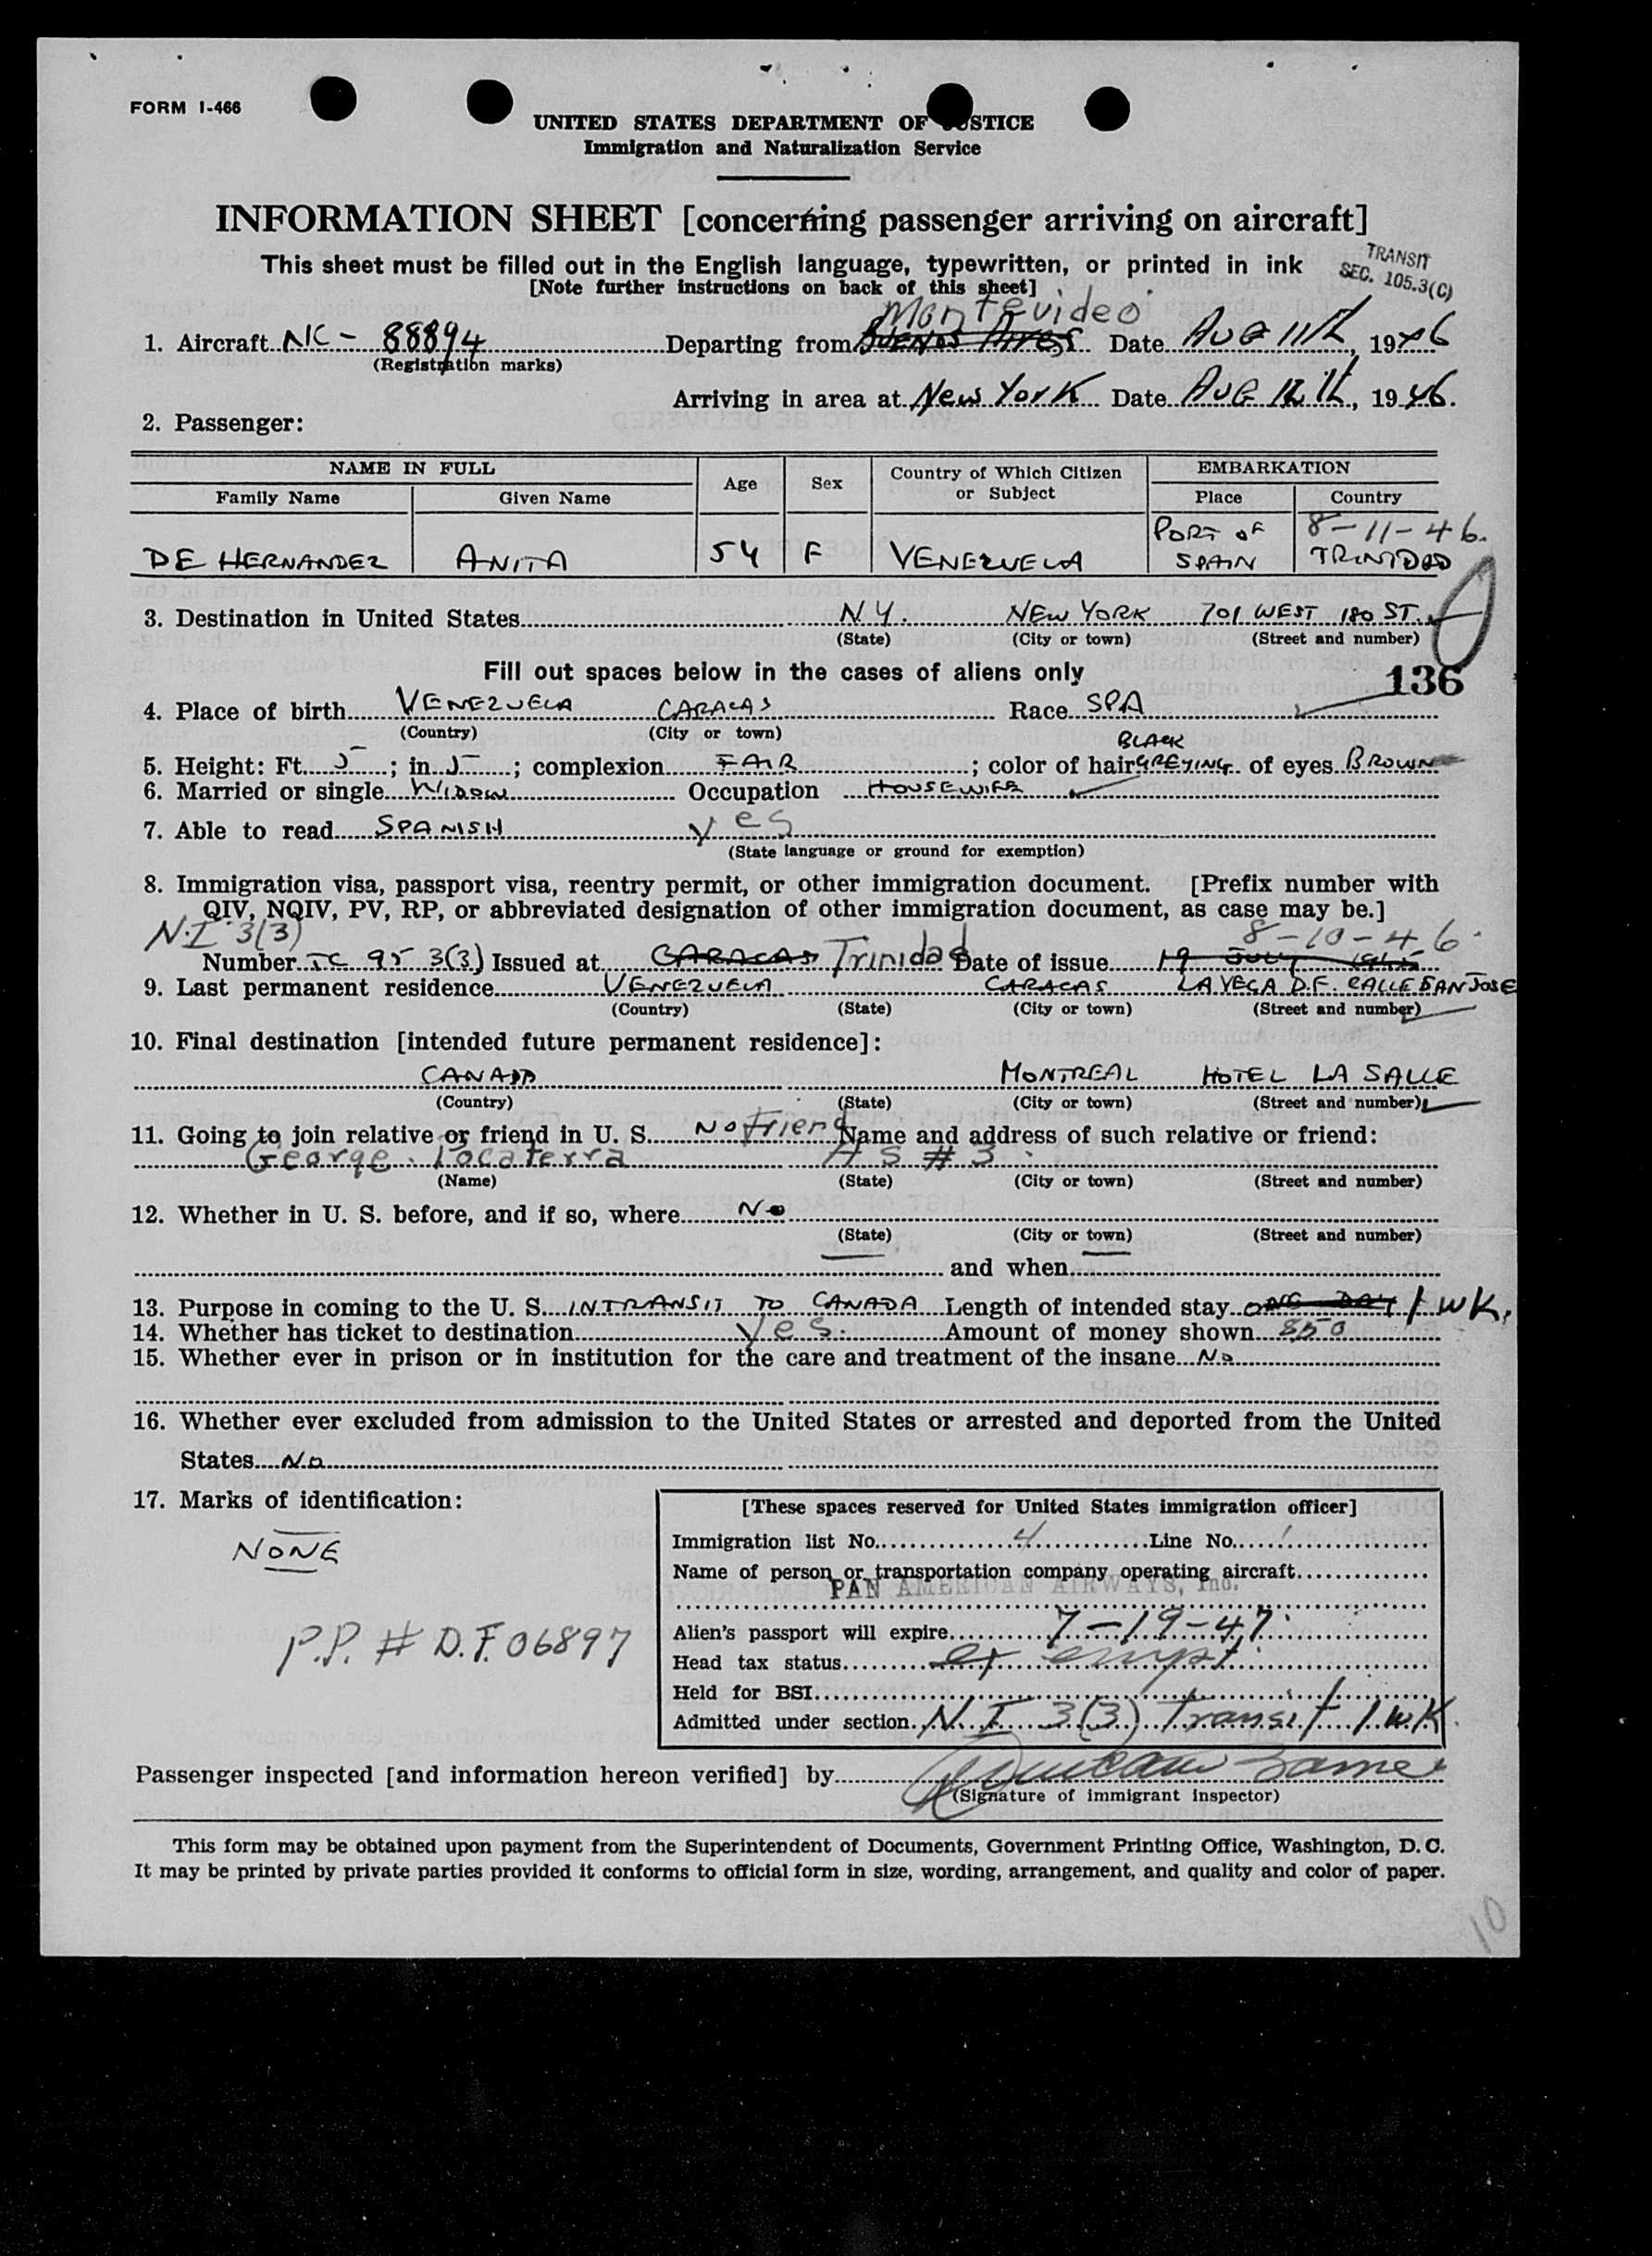 FORM I-466
UNITED STATES DEPARTMENT OF JUSTICE
Immigration and Naturalization Service
INFORMATION SHEET [concerning passenger arriving on aircraft]
This sheet must be filled out in the English language, typewritten, or printed in ink
[Note further instructions on back of this sheet]
TRANSIT
SEC. 105.3(C)
Montevideo
1. Aircraft NC - 88894 Departing from BUENOS AIRES Date AUG 11th, 1946
(Registration marks)
Arriving in area at New York Date AUG 12th, 1946.
2. Passenger:
NAME IN FULL Age Sex Country of Which Citizen or Subject EMBARKATION
Family Name Given Name Place Country
8-11-46.
DE HERNANDEZ ANITA 54 F VENEZUELA PORT OF SPAIN TRINIDAD
3. Destination in United States N.Y. NEW YORK 701 WEST 180 ST.
(State) (City or town) (Street and number)
Fill out spaces below in the cases of aliens only
136
4. Place of birth VENEZUELA CARACAS Race SPA
(Country) (City or town)
BLACK
5. Height: Ft. 5; in. 5; complexion FAIR; color of hair GREYING of eyes BROWN
6. Married or single WIDOW Occupation HOUSEWIFE
7. Able to read SPANISH yes
(State language or ground for exemption)
8. Immigration visa, passport visa, reentry permit, or other immigration document. [Prefix number with
QIV, NQIV, PV, RP, or abbreviated designation of other immigration document, as case may be.]
N.I 3(3) 8-10-46.
Number TC 95 3(3) Issued at CARACAS Trinidad Date of issue 19 JULY
9. Last permanent residence VENEZUELA CARACAS LA VEGA D.F. CALLE SAN JOSE
(Country) (State) (City or town) (Street and number)
10. Final destination [intended future permanent residence]:
CANADA MONTREAL HOTEL LA SALLE
(Country) (State) (City or town) (Street and number)
11. Going to join relative or friend in U. S. NO Friend Name and address of such relative or friend:
George Pocaterra AS #3
(Name) (State) (City or town) (Street and number)
12. Whether in U. S. before, and if so, where NO
(State) (City or town) (Street and number)
and when
13. Purpose in coming to the U. S. INTRANSIT TO CANADA Length of intended stay ONE DAY 1 WK.
14. Whether has ticket to destination Yes. Amount of money shown 850
15. Whether ever in prison or in institution for the care and treatment of the insane No
16. Whether ever excluded from admission to the United States or arrested and deported from the United
States No
17. Marks of identification:
NONE
P.P. # D.F. 06897
[These spaces reserved for United States immigration officer]
Immigration list No. 4 Line No. 1
Name of person or transportation company operating aircraft
PAN AMERICAN AIRWAYS, Inc.
Alien's passport will expire 7-19-47.
Head tax status exempt
Held for BSI
Admitted under section N.I 3(3) Transit 1 wK.
Passenger inspected [and information hereon verified] by
(Signature of immigrant inspector)
This form may be obtained upon payment from the Superintendent of Documents, Government Printing Office, Washington, D. C.
It may be printed by private parties provided it conforms to official form in size, wording, arrangement, and quality and color of paper.
10